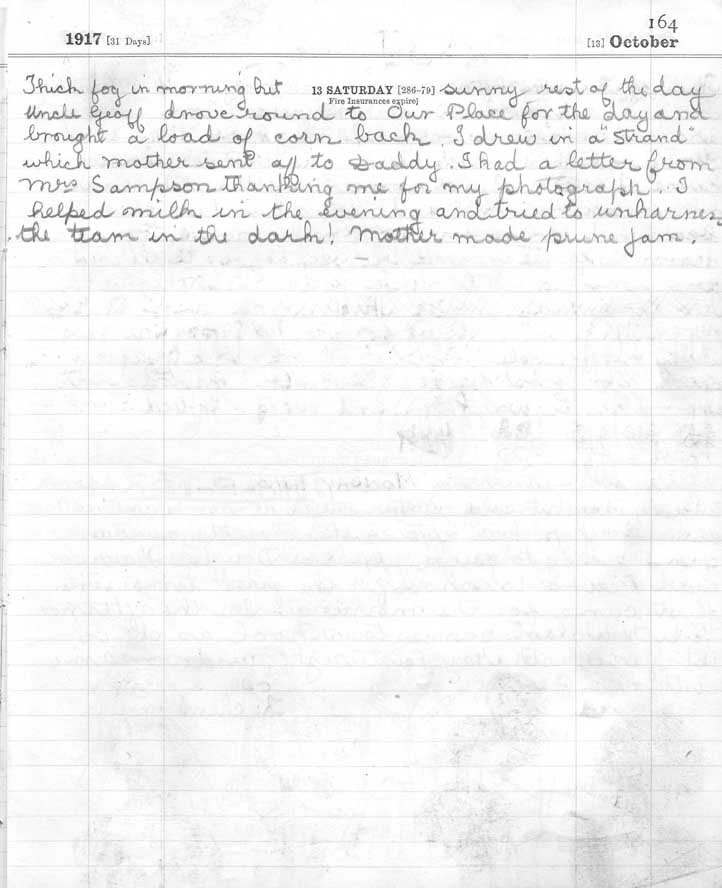 164
1917 [31 Days] [13] October
Thick fog in morning but 13 SATURDAY [286-79] sunny rest of the day
Fire Insurances expire]
Uncle Geoff drove round to Our Place for the day and
brought a load of corn back. I drew in a "Strand"
which mother sent off to Daddy. I had a letter from
Mrs Sampson thanking me for my photograph. I
helped milk in the evening and tried to unharness
the team in the dark! Mother made prune jam.